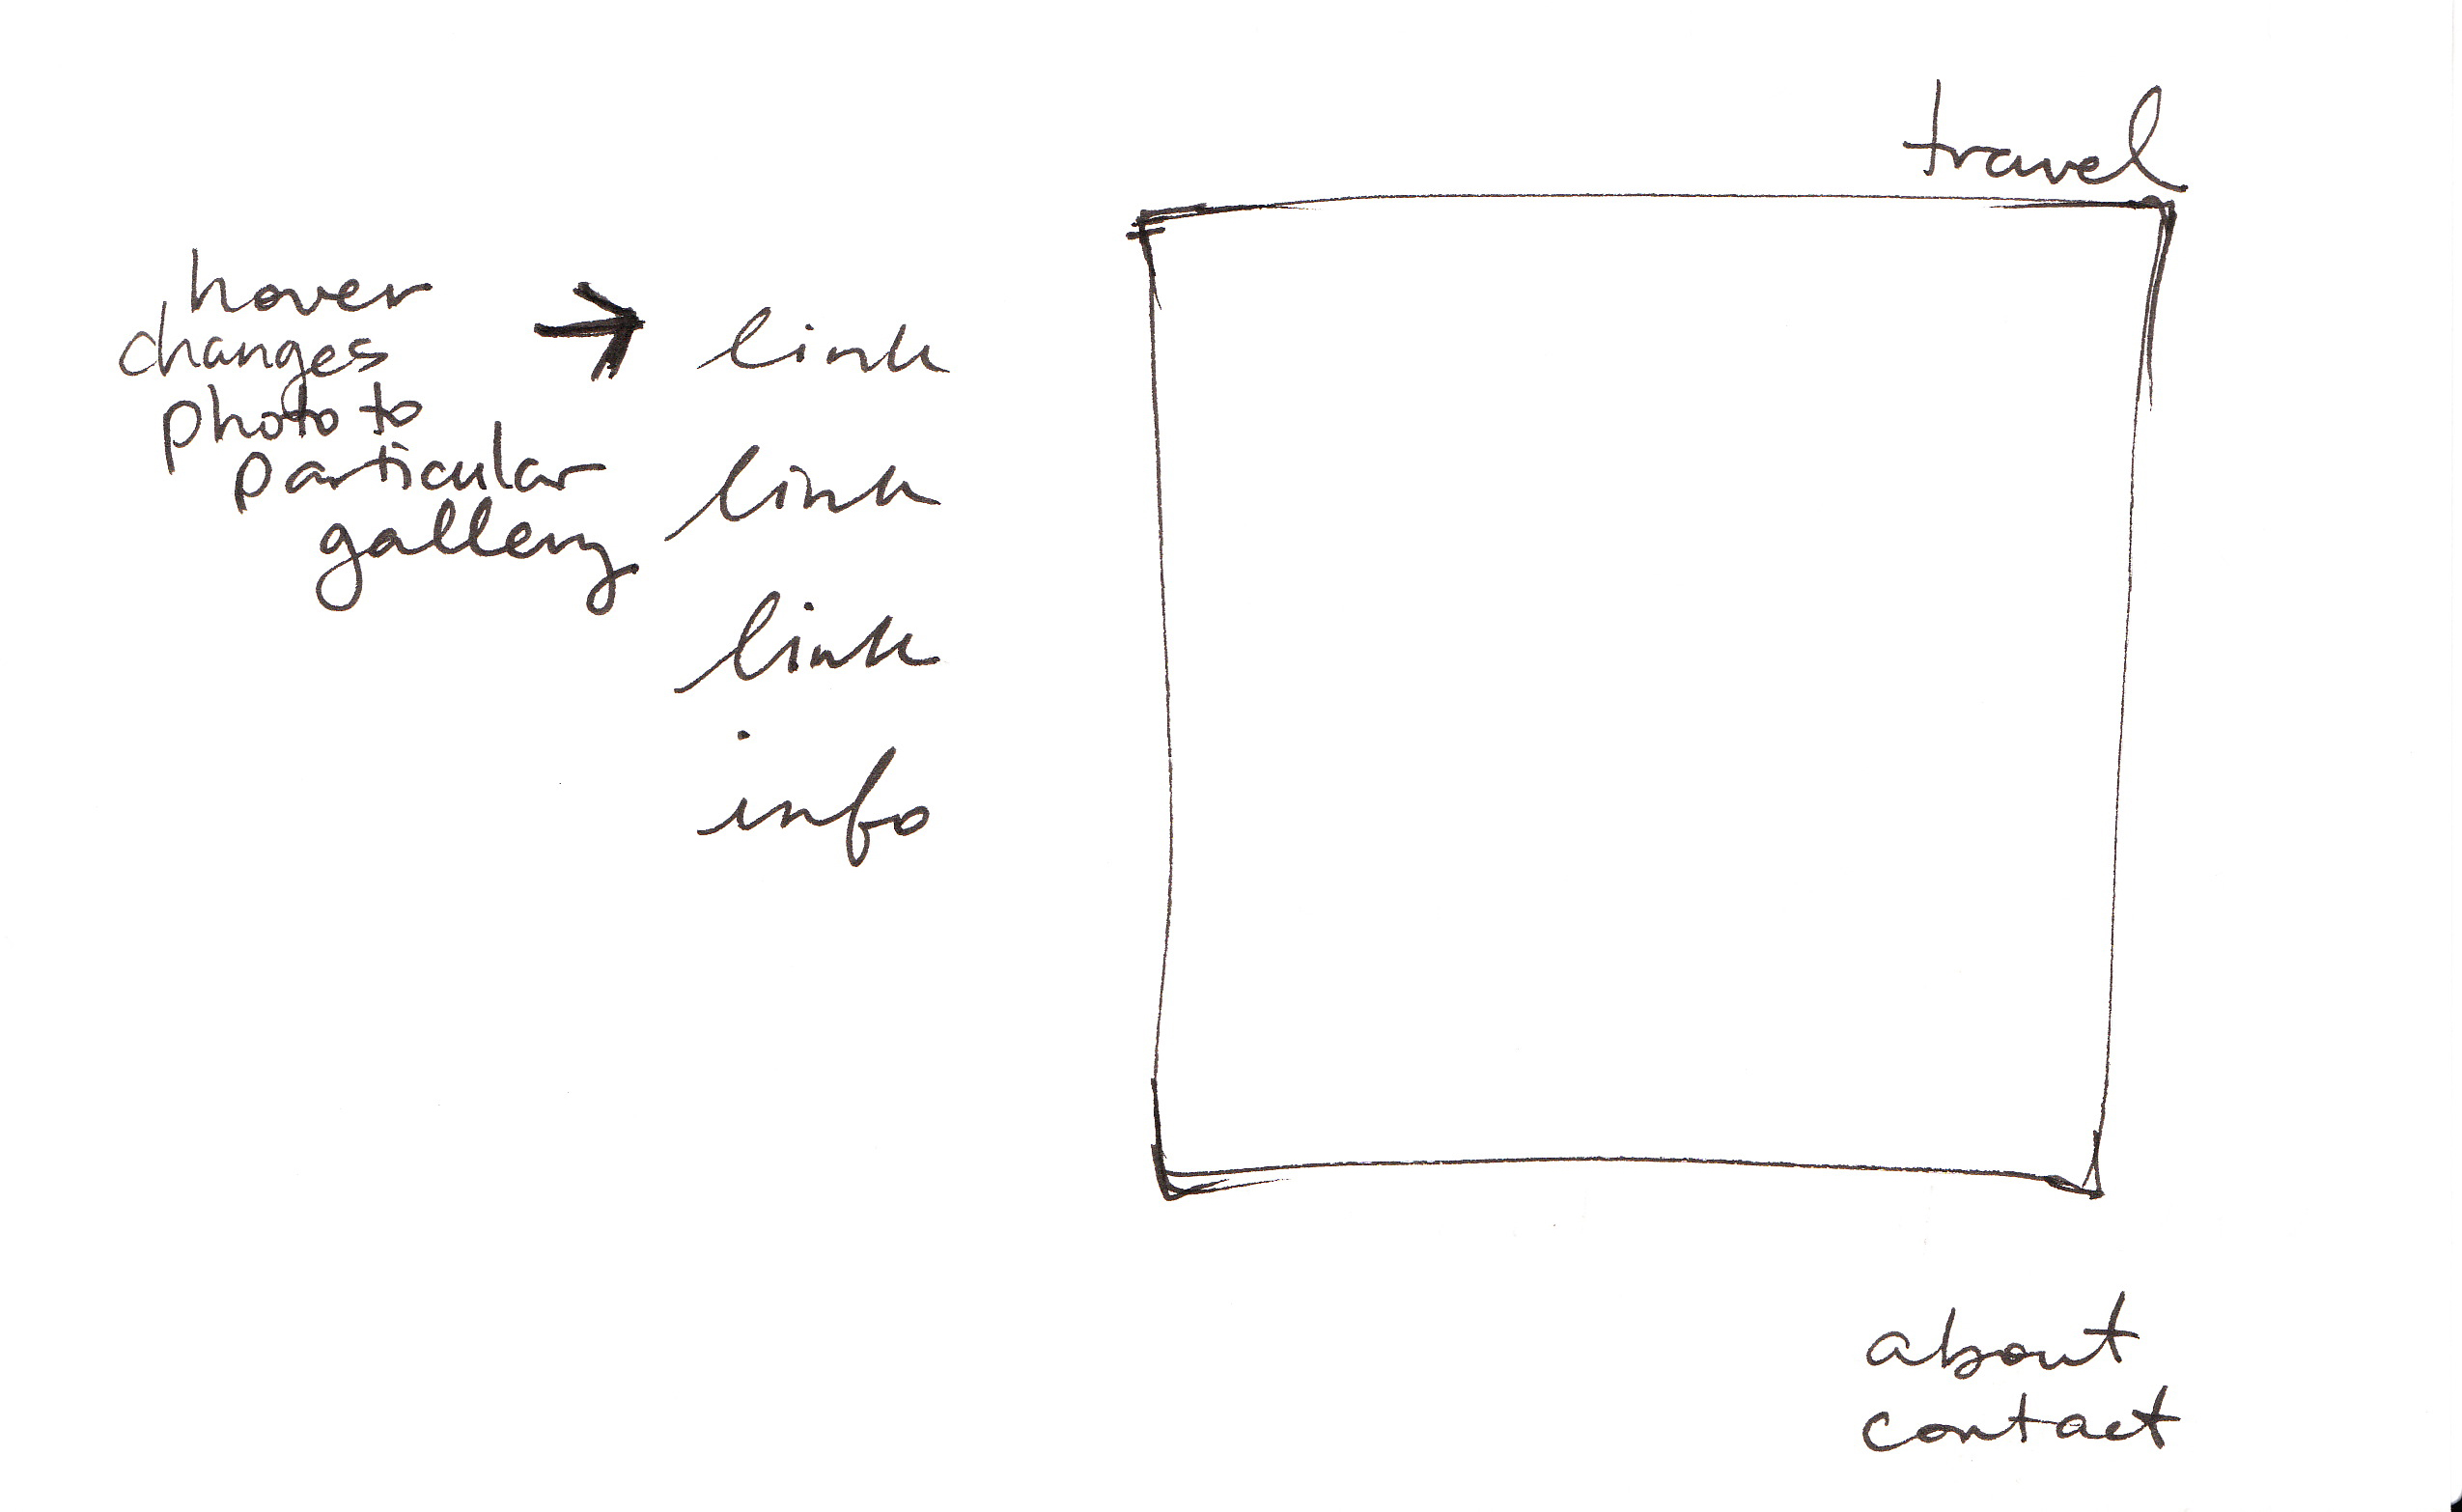 travel
hover
changes
photo to
particular
gallery
link
link
link
info
about
contact